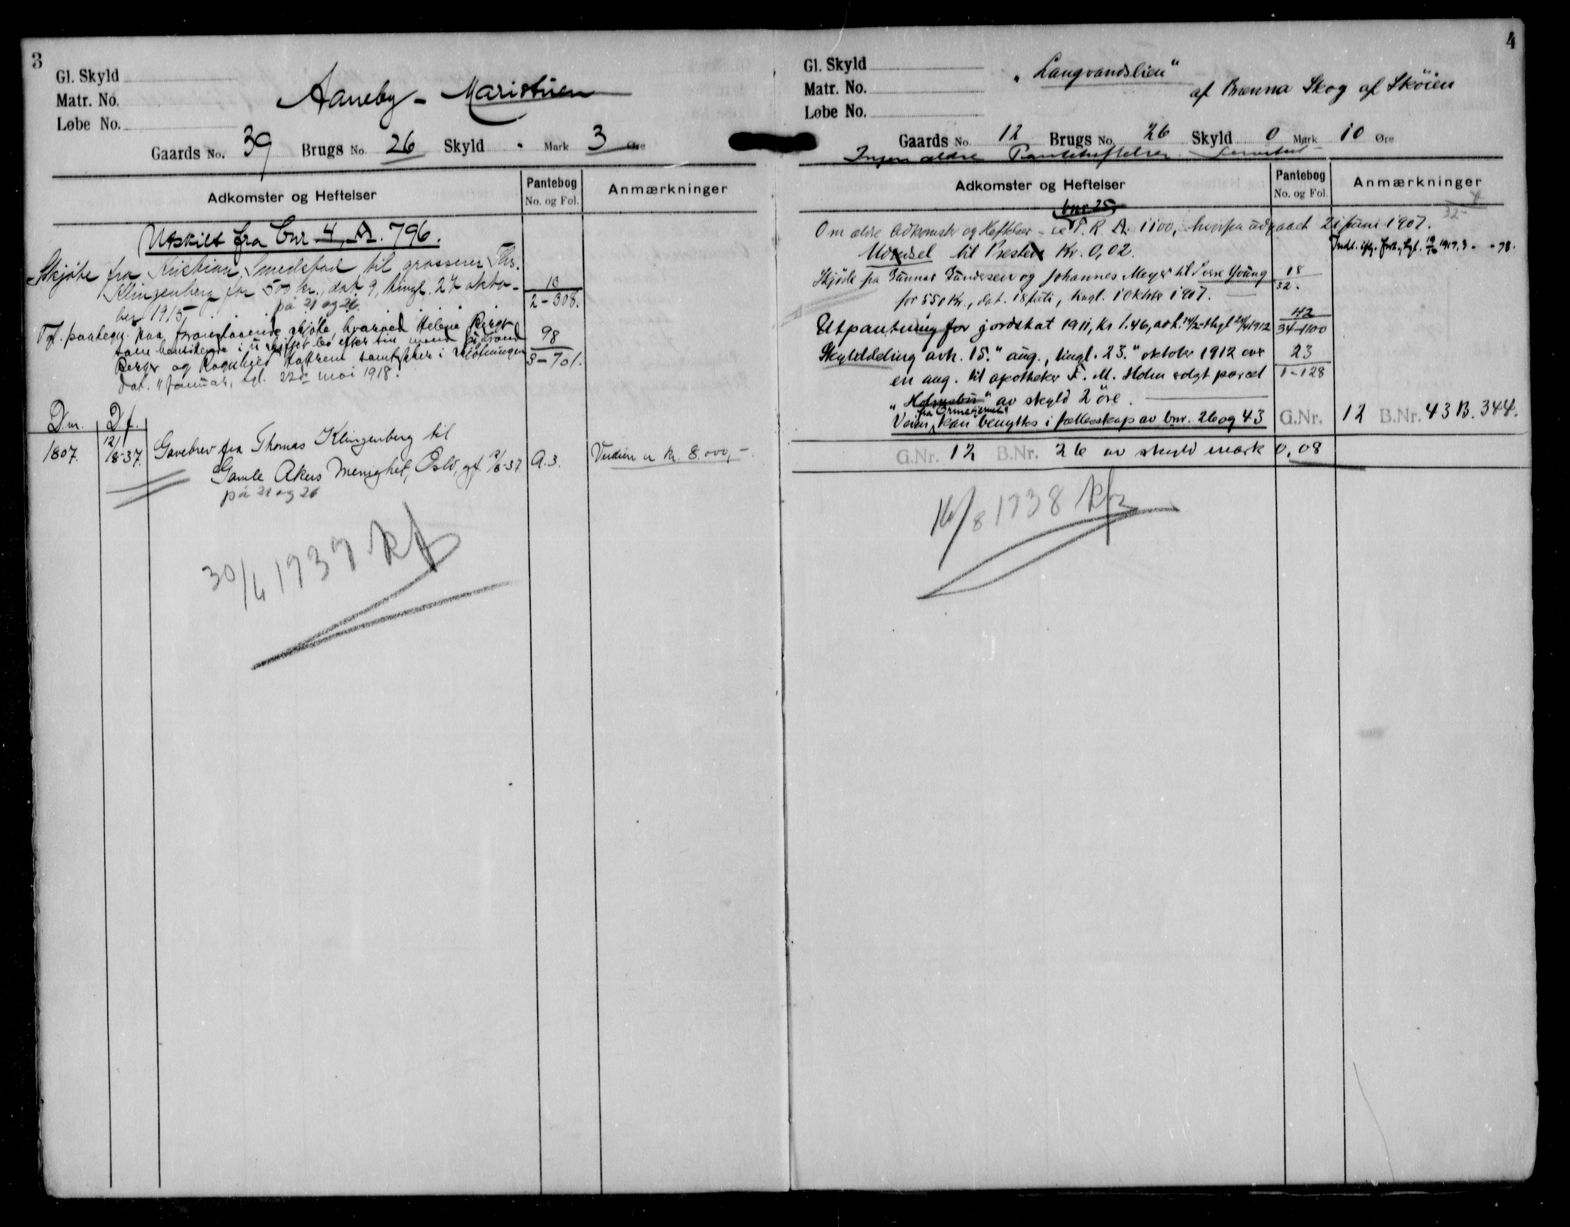 3
Gl. Skyld
Matr. No.
Løbe No.
Aaneby - Maristuen
Gaards No. 39 Brugs No. 26 Skyld - Mark 3 Øre
Adkomster og Heftelser
Pantebog
No. og Fol.
Anmærkninger
Utskilt fra bnr 4, A. 796.
Skjøte fra Kristian Smedstad til grosserer Ths.
Klingenberg for 500 kr., dat 9, tingl. 27 oktober 1915
på 21 og 26
10
2-308.
Tgl. paategn. paa foranstaaende skjøte, hvorved Helene Berger
som hensittende i uskiftet bo efter sin mand
Berger og Ragnhild samtykker i skjøtningen
dat. 11 januar, tgl. 22de mai 1918.
98
3-701.
Dnr. Df.
1807. 12/8-37. Gavebrev fra Thomas Klingenberg til
Gamle Akers Menighet, Oslo, gf. 12/8-37
på 21 og 26
A.3.
Verdien er kr. 8.000,-
30/6 1937 Kf
4
Gl. Skyld
Matr. No.
Løbe No.
"Langvandslien"
af Brenna Skog af Skøien
Gaards No. 12 Brugs No. 26 Skyld 0 Mark 10 Øre
Ingen ældre Panteheftelser
Adkomster og Heftelser
Pantebog
No. og Fol.
Anmærkninger
bnr. 25
Om ældre Adkomster og Heftelser se P. R. A. 1100, hvorfra udgaaet 21 juni 1907.
4
32-
Udredsel til Presten Kr. 0,02.
Indl. iflg. fork., tgl. 1917, 3 - 78.
Skjøde fra Gunnar Gundersen og Johannes Meyer til Sven Young
for 550 Kr., dat. 18 juli, tingl. 1 oktober 1907.
18
32.
Utpantning for jordskat 1911, kr 1.46, avh. tingl 1912
42
34-1100
Skylddeling avh. 15." aug., tingl. 23." oktober 1912 over
en ang. til apotheker F. M. Holm solgt parcel
23
1-128
"Holmebu" av skyld 2 øre.
fra
Veien kan benyttes i fællesskap av bnr. 26 og 43
G.Nr. 12 B.Nr. 43 B. 344.
G.Nr. 12 B.Nr. 26 av skyld mark 0,08
16/8 1938 Kf